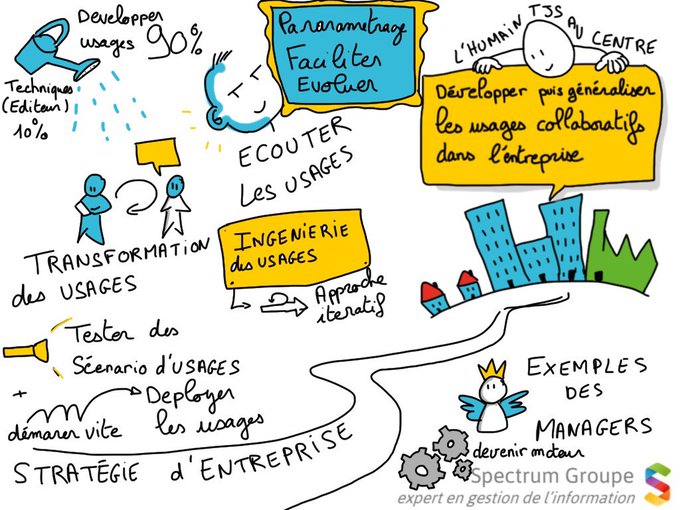 Developper
usages 90%
Techniques
(Editeur)
10%
Pararametrage
Faciliter
Evoluer
ECOUTER
LES USAGES
L'HUMAIN TJS AU CENTRE
Développer puis généraliser
les usages collaboratifs
dans l'entreprise
TRANSFORMATION
des USAGES
INGENIERIE
des USAGES
Approche
iteratif
Tester des
Scénario d'USAGES
+
démarer vite
Deployer
les usages
STRATÉGIE d'ENTREPRISE
EXEMPLES
DES
MANAGERS
devenir moteur
Spectrum Groupe
expert en gestion de l'information